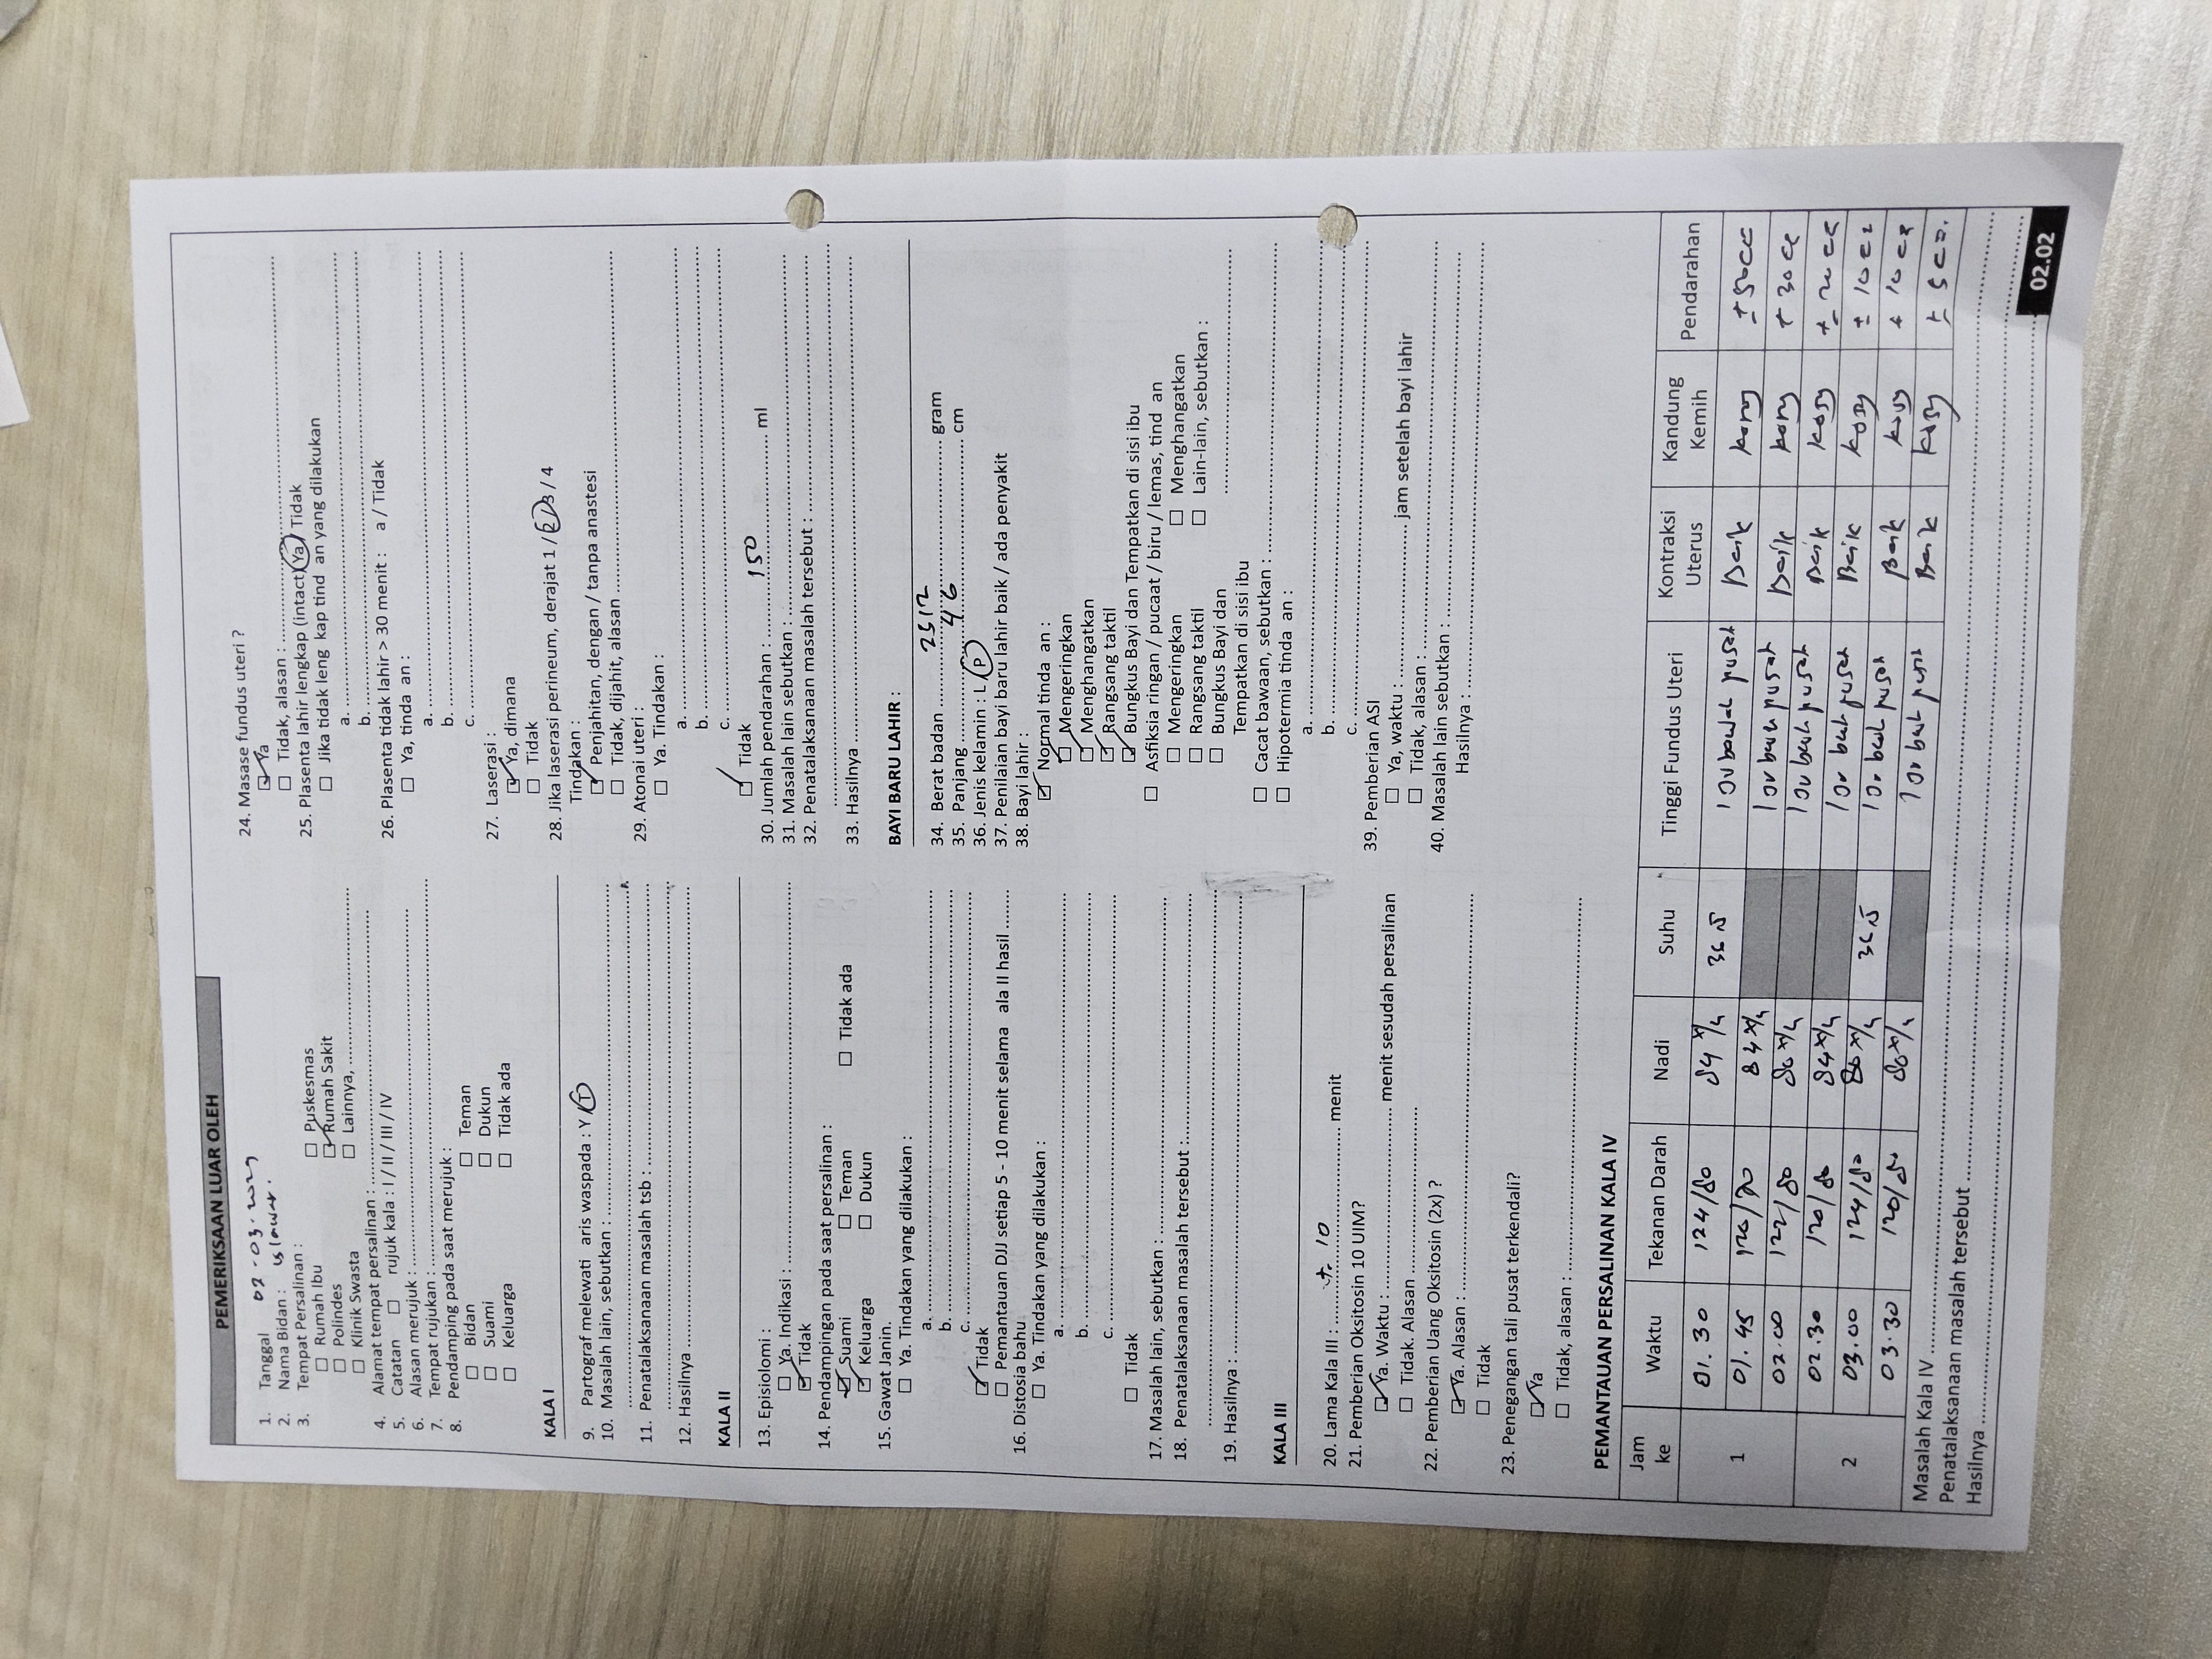 PEMERIKSAAN LUAR OLEH
1. Tanggal 02-03-2029
2. Nama Bidan :
3. Tempat Persalinan :
☐ Rumah Ibu ☐ Puskesmas
☐ Polindes ☑ Rumah Sakit
☐ Klinik Swasta ☐ Lainnya,
4. Alamat tempat persalinan :
5. Catatan ☐ rujuk kala : I / II / III / IV
6. Alasan merujuk :
7. Tempat rujukan :
8. Pendamping pada saat merujuk :
☐ Bidan ☐ Teman
☐ Suami ☐ Dukun
☐ Keluarga ☐ Tidak ada
KALA I
9. Partograf melewati aris waspada : Y / T
10. Masalah lain, sebutkan :
11. Penatalaksanaan masalah tsb :
12. Hasilnya
KALA II
13. Episiolomi :
☐ Ya. Indikasi :
☑ Tidak
14. Pendampingan pada saat persalinan :
☑ Suami ☐ Teman ☐ Tidak ada
☑ Keluarga ☐ Dukun
15. Gawat Janin.
☐ Ya. Tindakan yang dilakukan :
a.
b.
c.
☑ Tidak
☐ Pemantauan DJJ setiap 5 - 10 menit selama ala II hasil
16. Distosia bahu
☐ Ya. Tindakan yang dilakukan :
a.
b.
c.
☐ Tidak
17. Masalah lain, sebutkan :
18. Penatalaksanaan masalah tersebut :
19. Hasilnya :
KALA III
20. Lama Kala III : ± 10 menit
21. Pemberian Oksitosin 10 UIM?
☑ Ya. Waktu : menit sesudah persalinan
☐ Tidak. Alasan
22. Pemberian Uang Oksitosin (2x) ?
☑ Ya. Alasan :
☐ Tidak
23. Penegangan tali pusat terkendali?
☑ Ya
☐ Tidak, alasan :
24. Masase fundus uteri ?
☑ Ya
☐ Tidak, alasan :
25. Plasenta lahir lengkap (intact) Ya / Tidak
☐ Jika tidak leng kap tind an yang dilakukan
a.
b.
26. Plasenta tidak lahir > 30 menit : a / Tidak
☐ Ya, tinda an :
a.
b.
c.
27. Laserasi :
☑ Ya, dimana
☐ Tidak
28. Jika laserasi perineum, derajat 1 / 2 / 3 / 4
Tindakan :
☑ Penjahitan, dengan / tanpa anastesi
☐ Tidak, dijahit, alasan
29. Atonai uteri :
☐ Ya. Tindakan :
a.
b.
c.
☑ Tidak
30. Jumlah pendarahan : 150 ml
31. Masalah lain sebutkan :
32. Penatalaksanaan masalah tersebut :
33. Hasilnya
BAYI BARU LAHIR :
34. Berat badan 2512 gram
35. Panjang 46 cm
36. Jenis kelamin : L / P
37. Penilaian bayi baru lahir baik / ada penyakit
38. Bayi lahir :
☑ Normal tinda an :
☑ Mengeringkan
☑ Menghangatkan
☑ Rangsang taktil
☑ Bungkus Bayi dan Tempatkan di sisi ibu
☐ Asfiksia ringan / pucaat / biru / lemas, tind an
☐ Mengeringkan ☐ Menghangatkan
☐ Rangsang taktil ☐ Lain-lain, sebutkan :
☐ Bungkus Bayi dan
Tempatkan di sisi ibu
☐ Cacat bawaan, sebutkan :
☐ Hipotermia tinda an :
a.
b.
c.
39. Pemberian ASI
☐ Ya, waktu : jam setelah bayi lahir
☐ Tidak, alasan :
40. Masalah lain sebutkan :
Hasilnya :
PEMANTAUAN PERSALINAN KALA IV
Jam ke Waktu Tekanan Darah Nadi Suhu Tinggi Fundus Uteri Kontraksi Uterus Kandung Kemih Pendarahan
1 01.30 124/80 84 x/ 36,5 pusat Baik ± 50cc
01.45 120/70 84 x/ pusat Baik ± 30 cc
02.00 122/80 80 x/ pusat Baik ± 20 cc
2 02.30 120/80 84 x/ pusat Baik ± 10 cc
03.00 124/80 80 x/ 36,5 pusat Baik ± 10 cc
03.30 120/80 80 x/ Baik ± 5 cc.
Masalah Kala IV
Penatalaksanaan masalah tersebut
Hasilnya
02.02